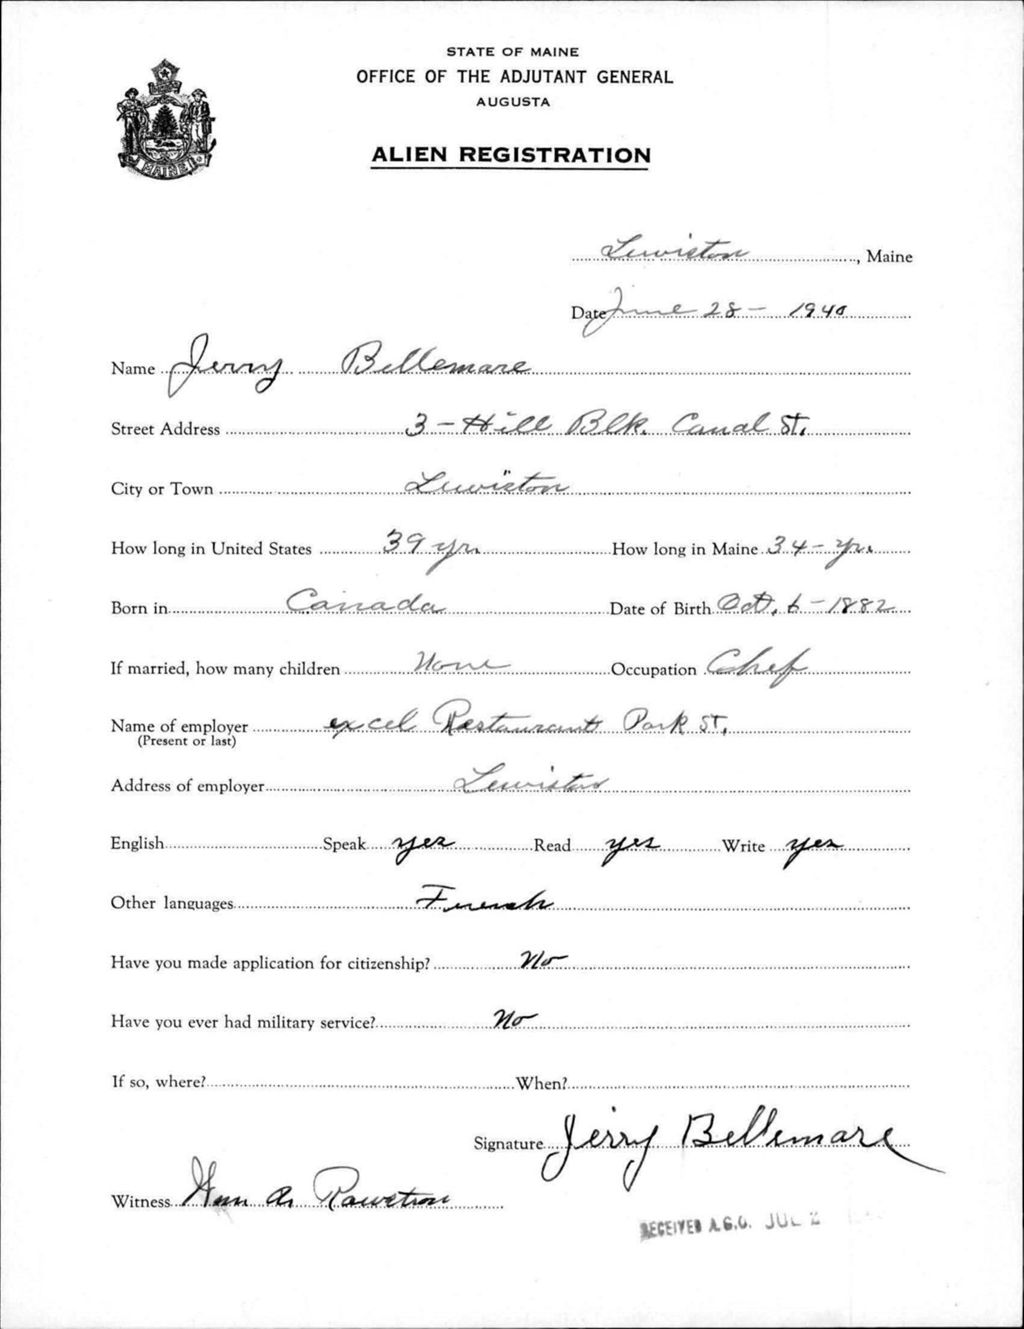 STATE OF MAINE
OFFICE OF THE ADJUTANT GENERAL
AUGUSTA
ALIEN REGISTRATION
MAINE
Lewiston, Maine
Date June 28 - 1940
Name Jerry Bellemare
Street Address 3 - Hill Blk. Canal St.
City or Town Lewiston
How long in United States 39 yrs How long in Maine 34 - yrs.
Born in Canada Date of Birth Oct. 6 - 1882
If married, how many children None Occupation Chef
Name of employer excel Restaurant Park St.
(Present or last)
Address of employer Lewiston
English Speak yes Read yes Write yes
Other languages French
Have you made application for citizenship? No
Have you ever had military service? No
If so, where? When?
Signature Jerry Bellemare
Witness Wm A. Rawstron
RECEIVED A.G.O. JUL 2